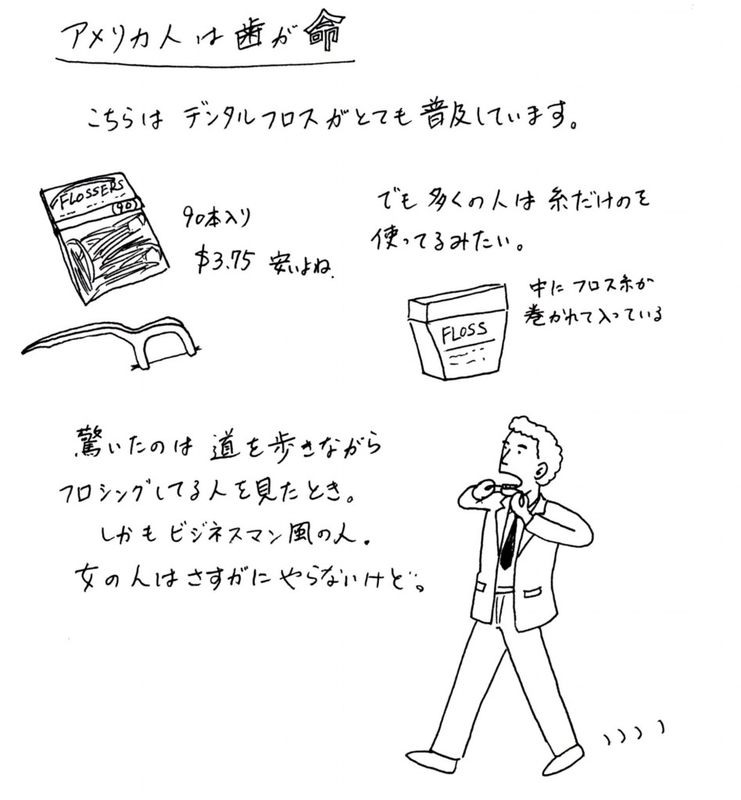 アメリカ人は歯が命
こちらはデンタルフロスがとても普及しています。
FLOSSERS
90
90本入り
$3.75 安いよね。
でも多くの人は糸だけのを
使ってるみたい。
FLOSS
中にフロス糸が
巻かれて入っている
驚いたのは道を歩きながら
フロシングしてる人を見たとき。
しかもビジネスマン風の人。
女の人はさすがにやらないけど。